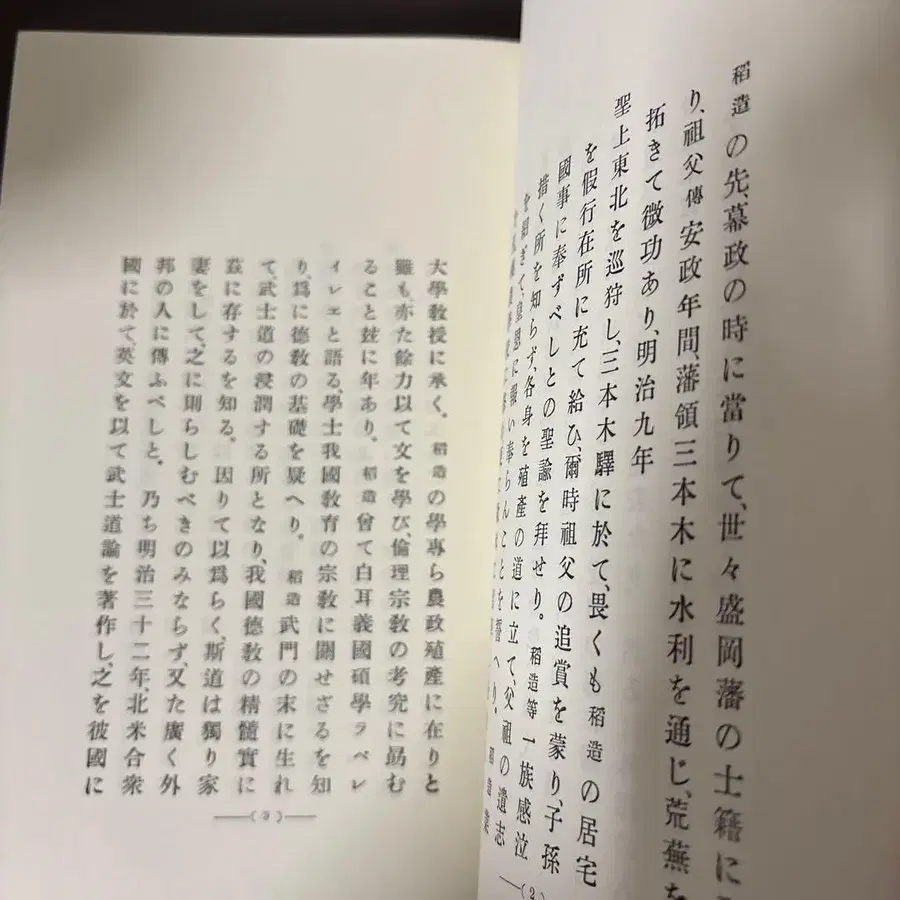 稻造の先、幕政の時に當りて、世々盛岡藩の士籍に
り、祖父傳安政年間、藩領三本木に水利を通じ、荒蕪を
拓きて微功あり、明治九年
聖上東北を巡狩し、三本木驛に於て、畏くも稻造の居宅
を假行在所に充て給ひ、爾時祖父の追賞を蒙り、子孫
國事に奉ずべしとの聖諭を拜せり。稻造等一族感泣
措く所を知らず、各身を殖產の道に立て、父祖の遺志
を紹ぎて、皇恩に報い奉らんことを誓へり。
(2)
大學敎授に承く。稻造の學專ら農政殖產に在りと
雖も、亦た餘力以て文を學び、倫理宗敎の考究に勗む
ること玆に年あり、稻造曾て白耳義國碩學ラベレ
イレエと語る、學士我國敎育の宗敎に關せざるを知
り、爲に德敎の基礎を疑へり。稻造武門の末に生れ
て、武士道の浸潤する所となり、我國德敎の精髓實に
玆に存するを知る。因りて以爲らく、斯道は獨り家
妻をして、之に則らしむべきのみならず、又た廣く外
邦の人に傳ふべしと。乃ち明治三十二年、北米合衆
國に於て、英文を以て武士道論を著作し、之を彼國に
(3)